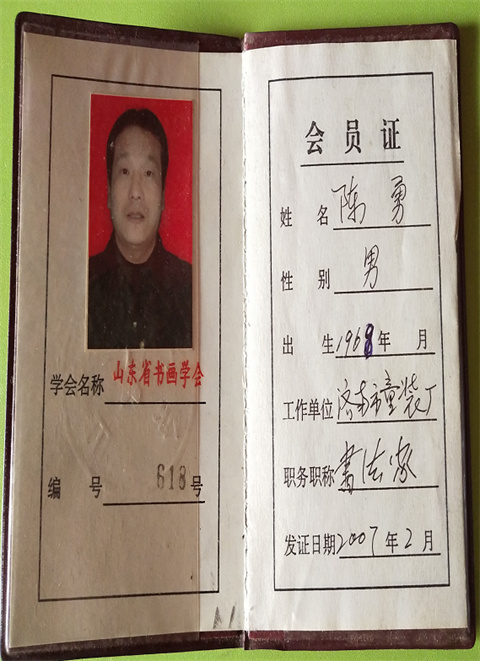 学会名称 山东省书画学会
编 号 618号
会员证
姓 名 陈勇
性 别 男
出 生 1968年 月
工作单位 济南市童装厂
职务职称 书法家
发证日期 2007年2月